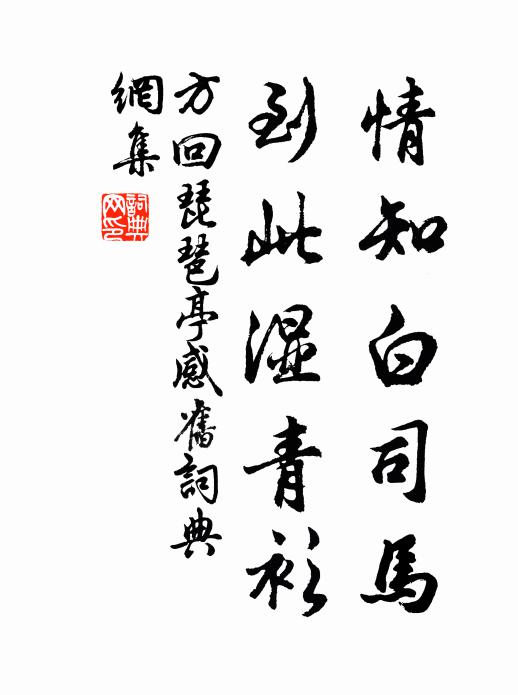 情知白司馬
到此濕青衫
方回琵琶亭感舊詞典
網集
詞典
网印